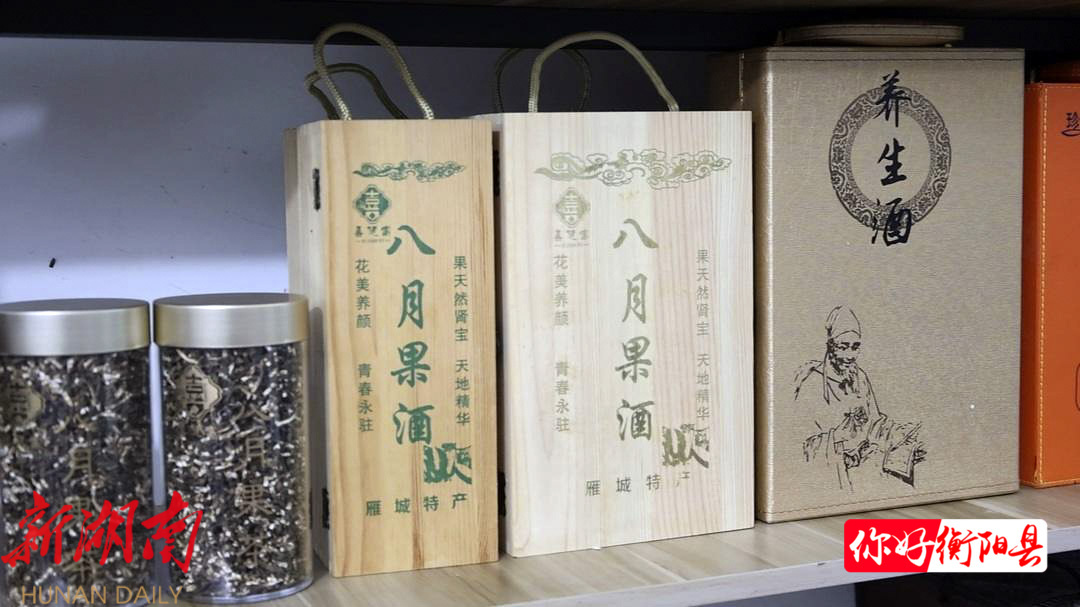 喜
八月果酒
果天然肾宝 天地精华
花美养颜 青春永驻
雁城特产
喜
八月果酒
果天然肾宝 天地精华
花美养颜 青春永驻
雁城特产
养生酒
珍
八月果茶
新湖南
HUNAN DAILY
你好衡阳县